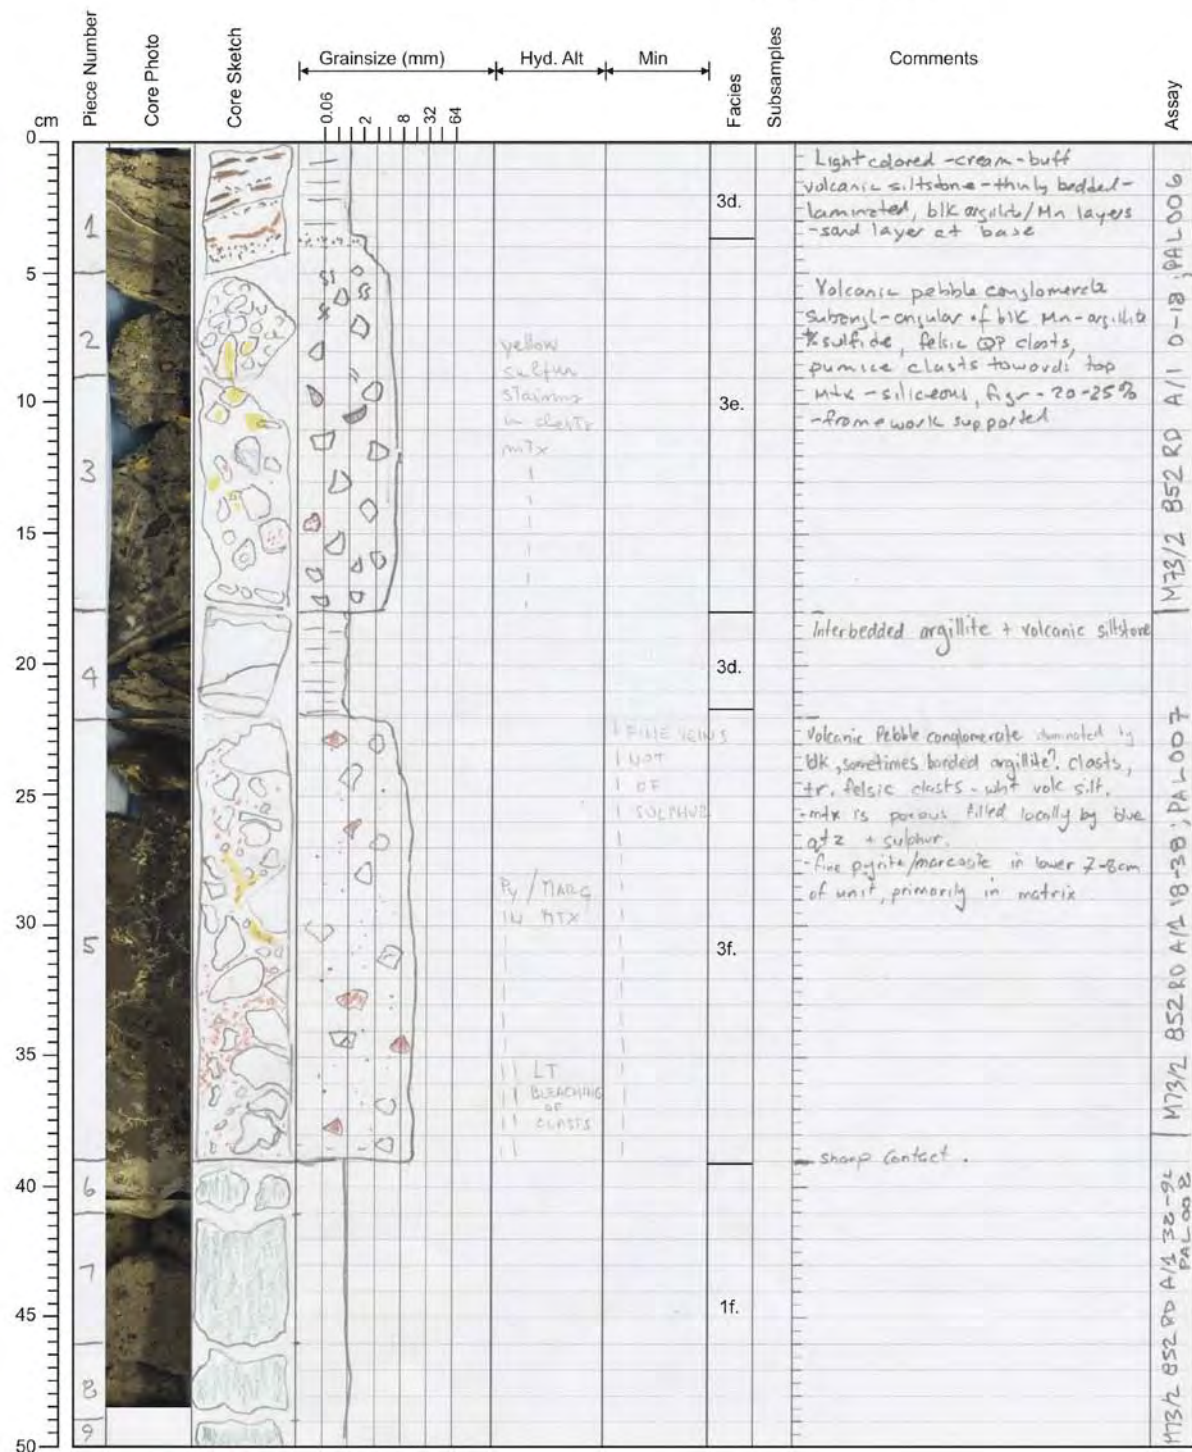 Piece Number
Core Photo
Core Sketch
Grainsize (mm)
Hyd. Alt
Min
Facies
Subsamples
Comments
Assay
cm
0.06
2
8
32
64
0
5
10
15
20
25
30
35
40
45
50
1
2
3
4
5
6
7
8
9
yellow
sulfur
staining
in clasts
mtx
Py/MARC
IN MTX
LT
BLEACHING
OF
CLASTS
FINE VEINS
NOT
OF
SULPHUR
3d.
3e.
3d.
3f.
1f.
Light colored - cream - buff
volcanic siltstone - thinly bedded -
laminated, blk argillite/Mn layers
- sand layer at base
Volcanic pebble conglomerate
subangl-angular of blk Mn-argillite
sulfide, felsic QP clasts,
pumice clasts towards top
mtx - siliceous, figr - 20-25%
- framework supported
Interbedded argillite + volcanic siltstone
Volcanic Pebble conglomerate dominated by
blk, sometimes banded argillite? clasts,
tr. felsic clasts - wht volc silt.
- mtx is porous filled locally by blue
qtz + sulphur.
- fine pyrite/marcasite in lower 7-8cm
of unit, primarily in matrix
- sharp contact.
M73/2 852 RD A/1 0-18; PAL006
M73/2 852 RD A/1 18-38; PAL007
M73/2 852 RD A/1 38-92
PAL008